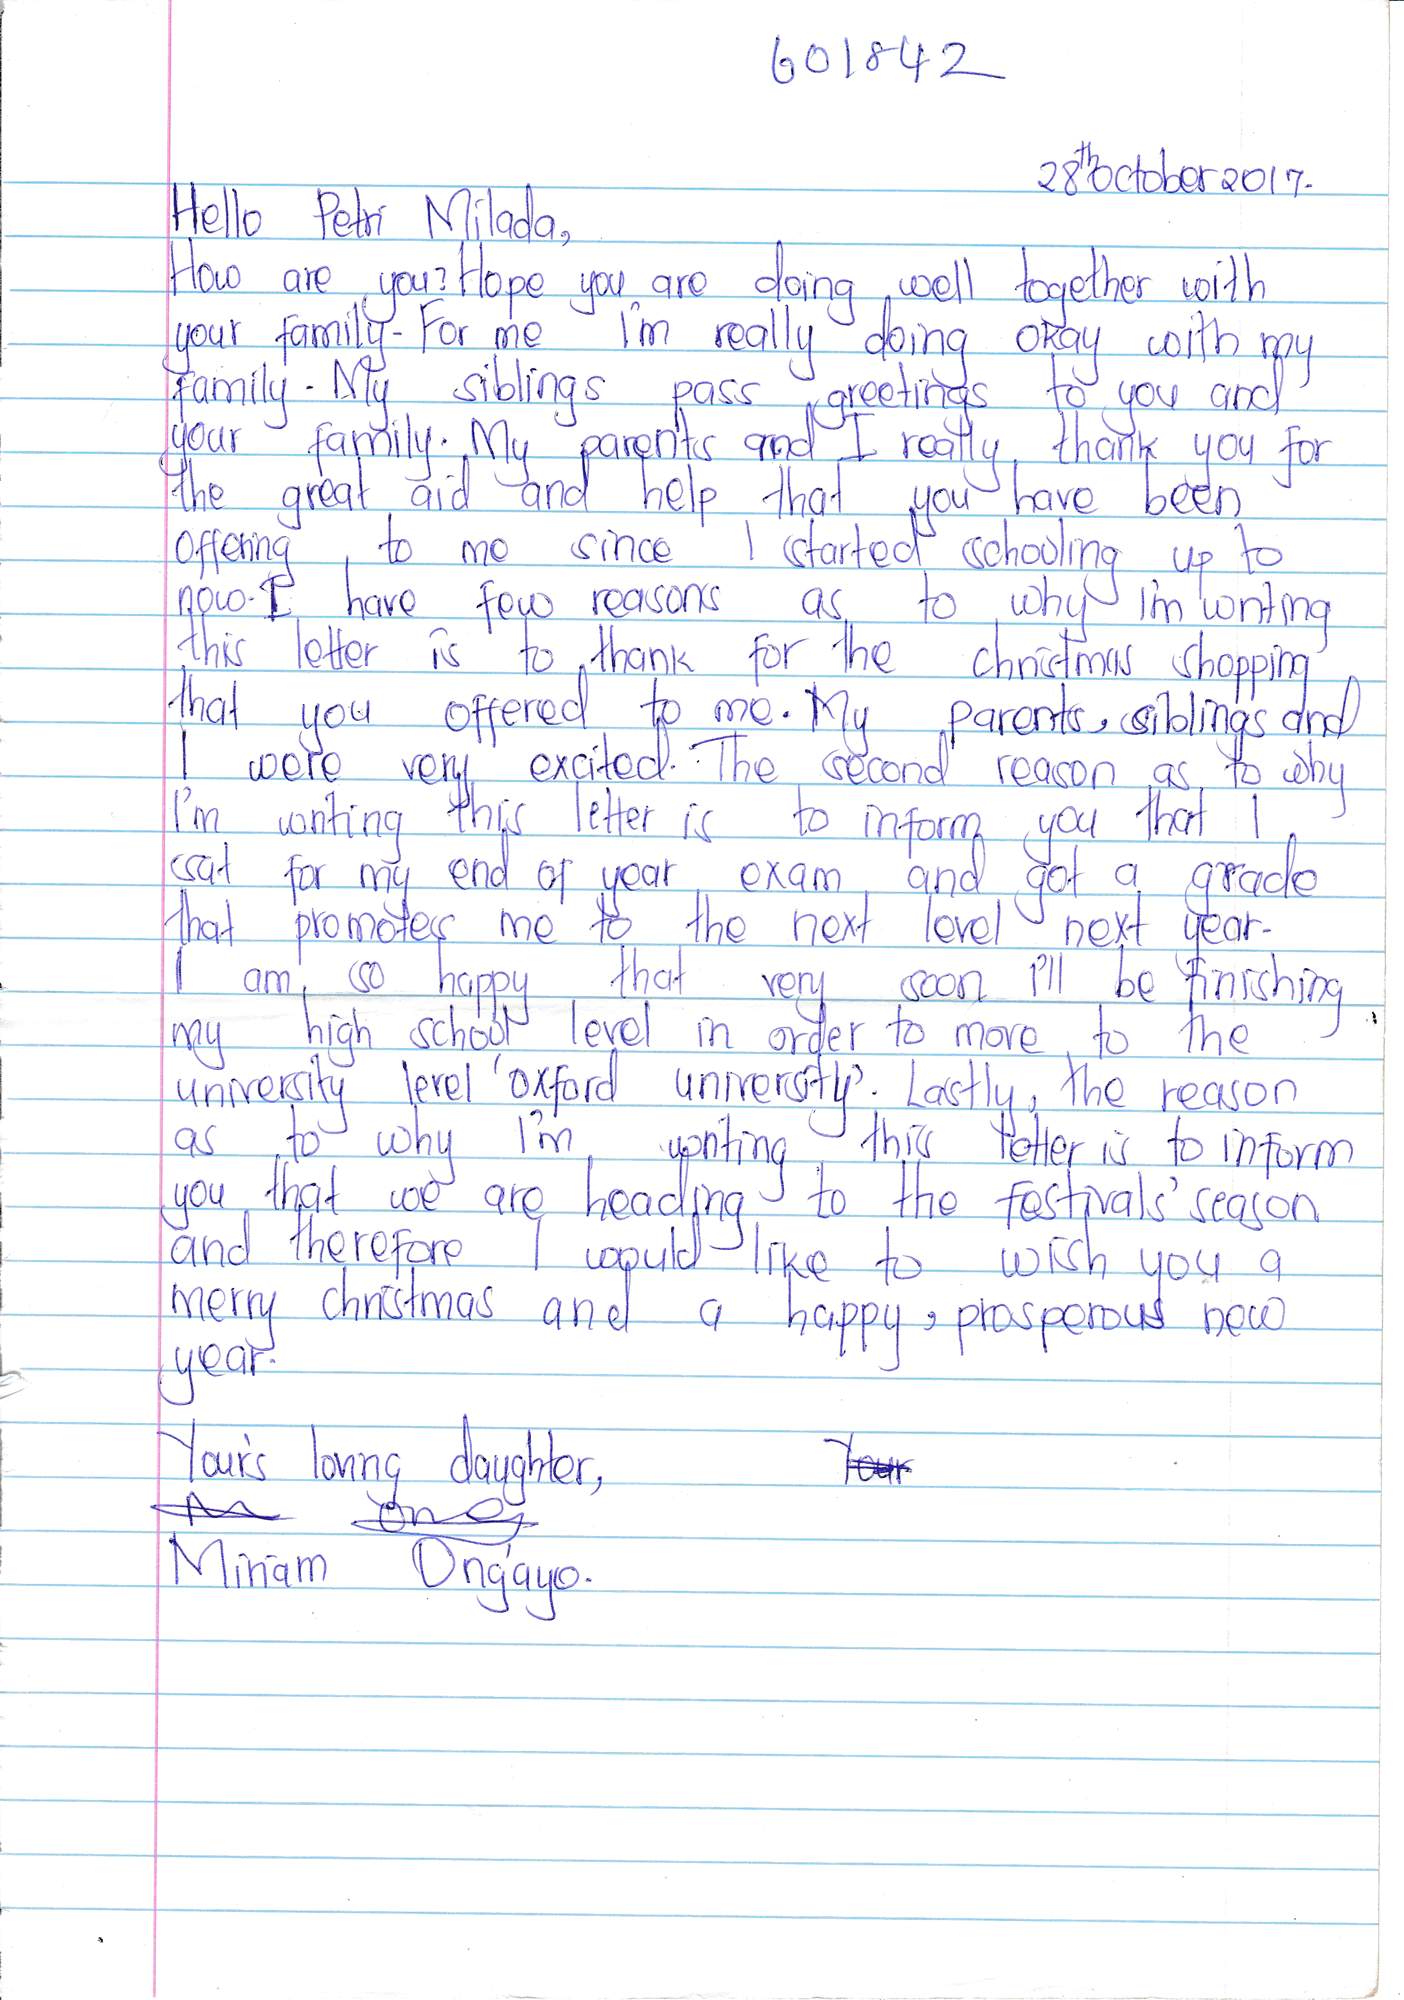 601842
28th October 2017.
Hello Petri Milada,
How are you? Hope you are doing well together with
your family. For me I'm really doing okay with my
family. My siblings pass greetings to you and
your family. My parents and I really thank you for
the great aid and help that you have been
offering to me since I started schooling up to
now. I have few reasons as to why I'm writing
this letter is to thank for the christmas shopping
that you offered to me. My parents, siblings and
I were very excited. The second reason as to why
I'm writing this letter is to inform you that I
sat for my end of year exam and got a grade
that promotes me to the next level next year.
I am so happy that very soon I'll be finishing
my high school level in order to more to the
university level 'oxford university'. Lastly, the reason
as to why I'm writing this letter is to inform
you that we are heading to the festivals' season
and therefore I would like to wish you a
merry christmas and a happy, prosperous new
year.
Your's loving daughter, Your
Miriam Ong'ayo.